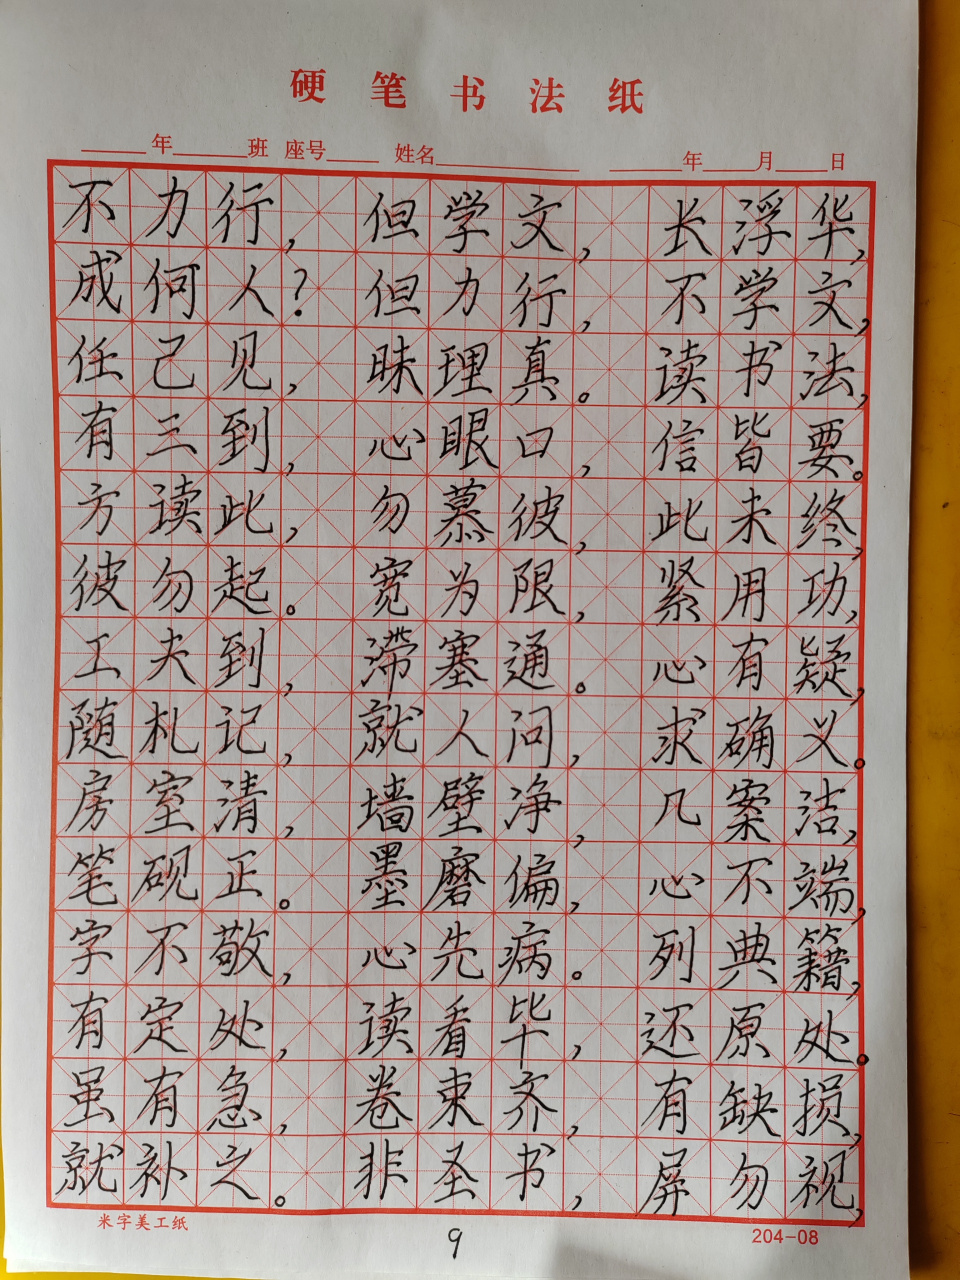 硬笔书法纸
年 班 座号 姓名 年 月 日
不力行,但学文,长浮华,
成何人?但力行,不学文,
任己见,昧理真。读书法,
有三到,心眼口,信皆要。
方读此,勿慕彼,此未终,
彼勿起。宽为限,紧用功,
工夫到,滞塞通。心有疑,
随札记,就人问,求确义。
房室清,墙壁净,几案洁,
笔砚正。墨磨偏,心不端,
字不敬,心先病。列典籍,
有定处,读看毕,还原处。
虽有急,卷束齐,有缺损,
就补之。非圣书,屏勿视,
米字美工纸 9 204-08